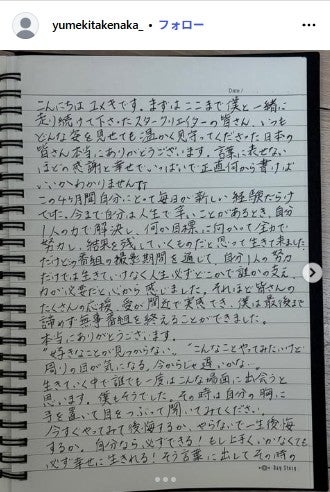 yumekitakenaka_ • フォロー
Date /
こんにちは ユメキです。まずはここまで僕と一緒に
走り続けて下さったスタークリエイターの皆さん、いつも
どんな姿を見せても温かく見守ってくださった日本の
皆さん本当にありがとうございます。言葉に表せない
ほどの感謝と幸せでいっぱいで正直何から書けば
いいかわかりませんTT
この4ヶ月間自分にとって毎日が新しい経験だらけ
でした。今まで自分は人生で辛いことがあるとき、自分
1人の力で解決し、何か目標に向かって全力で
努力し、結果を残していくものだと思って生きて来ました。
だけどこの番組の撮影期間を通して、自分1人の努力
だけでは生きていけなく人生必ずどこかで誰かの支え
力が必要だと心から感じました。それほど皆さんの
たくさんの応援、愛が間近で実感でき、僕は最後まで
諦めず無事番組を終えることができました。
本当にありがとうございます。
"好きなことが見つからない。" "こんなことやってみたいけど
周りの目が気になる。今からじゃ遅いかな…"
生きていく中で誰でも一度はこんな場面に出会うと
思います。僕もそうでした。その時は自分の胸に
手を置いて目をつぶって聞いてみてください。
今すぐやってみて後悔するか、やらないで一生後悔
するか。自分なら、必ずできる！もし上手くいかなくても
必ず幸せに生きれる！そう言葉に出してその時の
Day Story